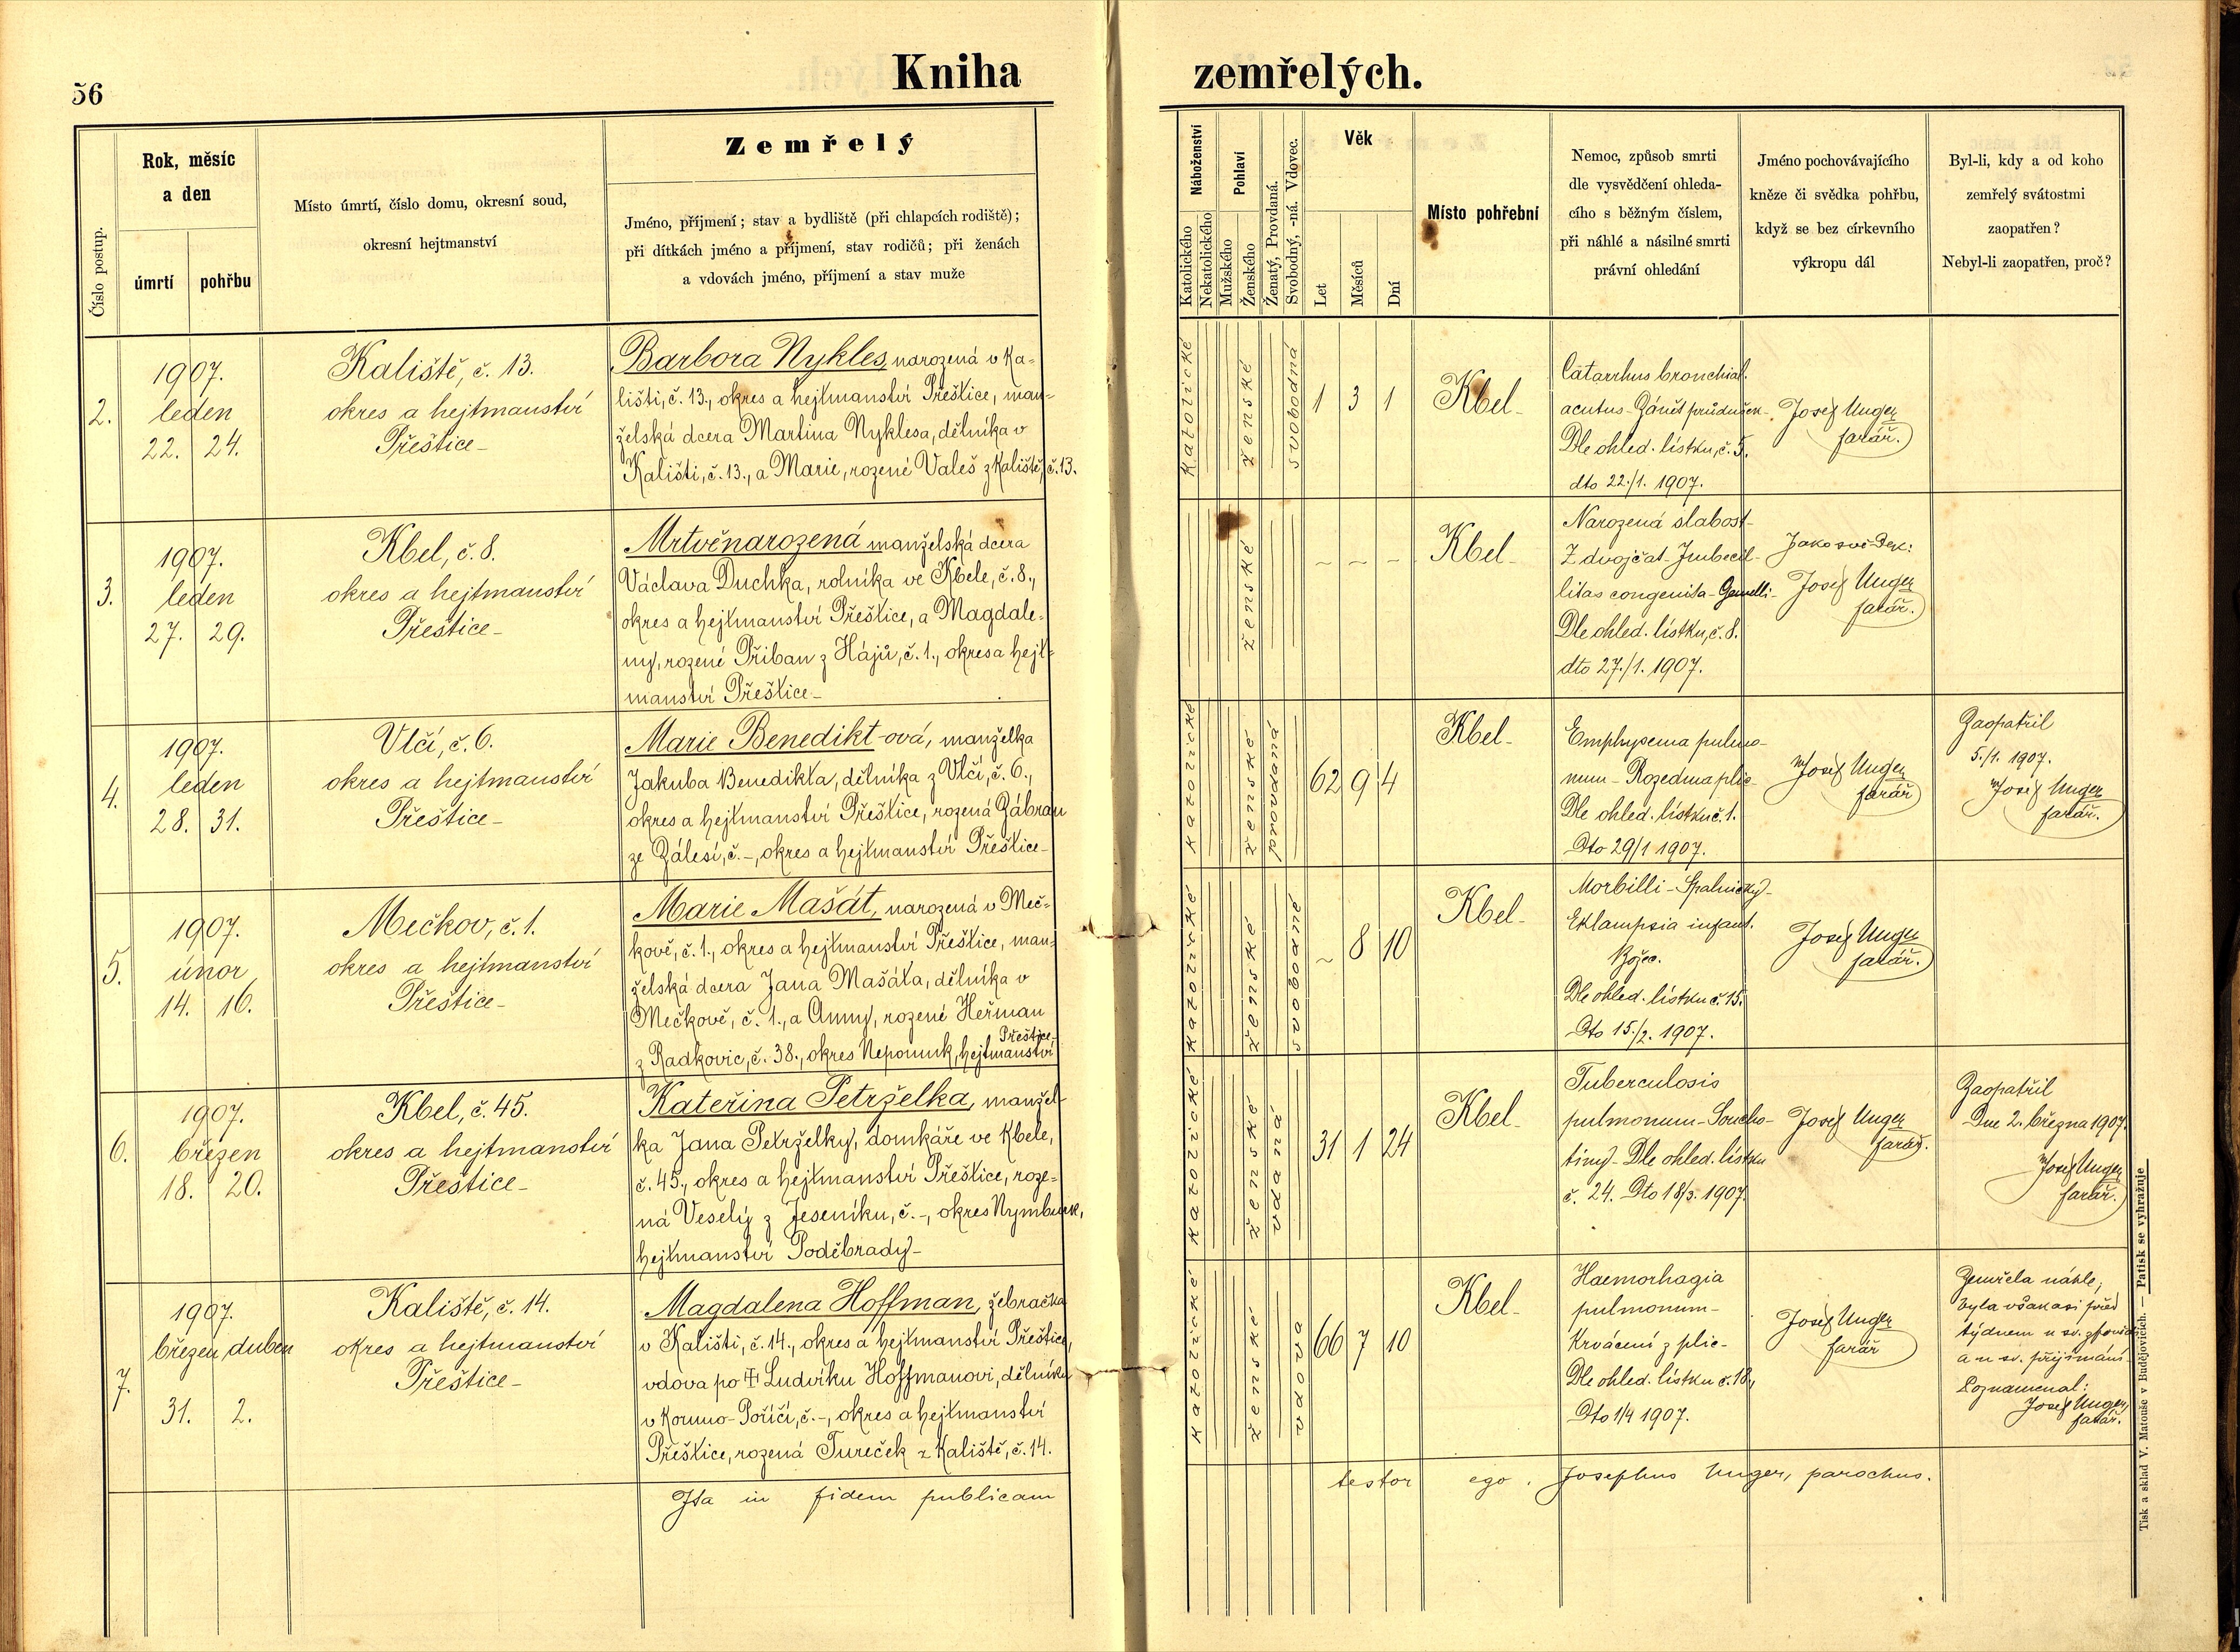 56
Kniha zemřelých.
Číslo postup.
Rok, měsíc
a den
úmrtí
pohřbu
Místo úmrtí, číslo domu, okresní soud,
okresní hejtmanství
Zemřelý
Jméno, příjmení; stav a bydliště (při chlapcích rodiště);
při dítkách jméno a příjmení, stav rodičů; při ženách
a vdovách jméno, příjmení a stav muže
Náboženství
Katolického
Nekatolického
Pohlaví
Mužského
Ženského
Ženatý, Provdaná.
Svobodný, -ná. Vdovec.
Věk
Let
Měsíců
Dní
Místo pohřební
Nemoc, způsob smrti
dle vysvědčení ohleda-
cího s běžným číslem,
při náhlé a násilné smrti
právní ohledání
Jméno pochovávajícího
kněze či svědka pohřbu,
když se bez církevního
výkropu dál
Byl-li, kdy a od koho
zemřelý svátostmi
zaopatřen?
Nebyl-li zaopatřen, proč?
2.
1907.
leden
22. 24.
Kaliště, č. 13.
okres a hejtmanství
Přeštice-
Barbora Nykles, narozená v Ka-
lišti, č. 13., okres a hejtmanství Přeštice, man-
želská dcera Martina Nyklesa, dělníka v
Kališti, č. 13., a Marie, rozené Valeš z Kaliště, č. 13.
katolické
ženské
svobodná
1 3 1
Kbel-
Catarrhus bronchial.
acutus- Zánět průdušek-
Dle ohled. lístku, č. 5.
dto 22./1. 1907.
Josef Unger
farář.
3.
1907.
leden
27. 29.
Kbel, č. 8.
okres a hejtmanství
Přeštice-
Mrtvěnarozená manželská dcera
Václava Duchka, rolníka ve Kbele, č. 8.,
okres a hejtmanství Přeštice, a Magdale-
ny, rozené Přiban z Hájů, č. 1., okres a hejt-
manství Přeštice-
ženské
- - -
Kbel-
Narozená slabost-
Z dvojčat- Imbecil-
litas congenita- Gemelli-
Dle ohled. lístku, č. 8.
dto 27./1. 1907.
Jako svědek:
Josef Unger
farář.
4.
1907.
leden
28. 31.
Vlčí, č. 6.
okres a hejtmanství
Přeštice-
Marie Benedikt-ová, manželka
Jakuba Benedikta, dělníka z Vlčí, č. 6.,
okres a hejtmanství Přeštice, rozená Zábran
ze Zálesí, č. -, okres a hejtmanství Přeštice-
katolické
ženské
provdaná
62 9 4
Kbel-
Emphysema pulmo-
num- Rozedma plic-
Dle ohled. lístku č. 1.
Dto 29/1 1907.
Josef Unger
farář
Zaopatřil
5./1. 1907.
Josef Unger
farář.
5.
1907.
únor
14. 16.
Mečkov, č. 1.
okres a hejtmanství
Přeštice-
Marie Mašát, narozená v Meč-
kově, č. 1., okres a hejtmanství Přeštice, man-
želská dcera Jana Mašáta, dělníka v
Mečkově, č. 1., a Anny, rozené Heřman
z Radkovic, č. 38., okres Nepomuk, hejtmanství
Přeštice-
katolické
ženské
svobodné
- 8 10
Kbel-
Morbilli- Spalničky-
Eklampsia infant.
Dle ohled. lístku č. 15.
Dto 15./2. 1907.
Josef Unger
farář.
6.
1907.
březen
18. 20.
Kbel, č. 45.
okres a hejtmanství
Přeštice-
Kateřina Petrželka, manžel-
ka Jana Petrželky, domkáře ve Kbele,
č. 45., okres a hejtmanství Přeštice, roze-
ná Veselý z Jeseníku, č. -, okres Nymburk,
hejtmanství Poděbrady-
katolické
ženské
vdaná
31 1 24
Kbel-
Tuberculosis
pulmonum- Soucho-
tiny- Dle ohled. lístku
č. 24. Dto 18/3. 1907.
Josef Unger
farář.
Zaopatřil
Dne 2. března 1907.
Josef Unger
farář.
7.
1907.
březen duben
31. 2.
Kaliště, č. 14.
okres a hejtmanství
Přeštice-
Magdalena Hoffman, žebračka
v Kališti, č. 14., okres a hejtmanství Přeštice,
vdova po † Ludvíku Hoffmanovi, dělníku
v Korumo-Poříčí, č. -, okres a hejtmanství
Přeštice, rozená Tureček z Kaliště, č. 14.
katolické
ženské
vdova
66 7 10
Kbel-
Haemorhagia
pulmonum-
Krvácení z plic-
Dle ohled. lístku č. 18,
Dto 1/4 1907.
Josef Unger
farář
Zemřela náhle,
byla však asi před
týdnem u sv. zpovědi
a u sv. přijímání.
Poznamenal:
Josef Unger,
farář.
Ita in fidem publicam testor ego. Josephus Unger, parochus.
Tisk a sklad V. Matouše v Budějovicích. — Patisk se vyhražuje